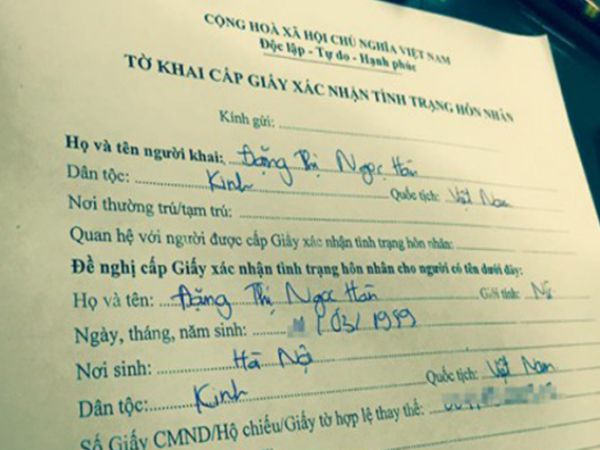 CỘNG HOÀ XÃ HỘI CHỦ NGHĨA VIỆT NAM
Độc lập - Tự do - Hạnh phúc
TỜ KHAI CẤP GIẤY XÁC NHẬN TÌNH TRẠNG HÔN NHÂN
Kính gửi:
Họ và tên người khai: Đặng Thị Ngọc Hân
Dân tộc: Kinh Quốc tịch: Việt Nam
Nơi thường trú/tạm trú:
Quan hệ với người được cấp Giấy xác nhận tình trạng hôn nhân:
Đề nghị cấp Giấy xác nhận tình trạng hôn nhân cho người có tên dưới đây:
Họ và tên: Đặng Thị Ngọc Hân Giới tính: Nữ
Ngày, tháng, năm sinh: /03/1999
Nơi sinh: Hà Nội
Dân tộc: Kinh Quốc tịch: Việt Nam
Số Giấy CMND/Hộ chiếu/Giấy tờ hợp lệ thay thế: